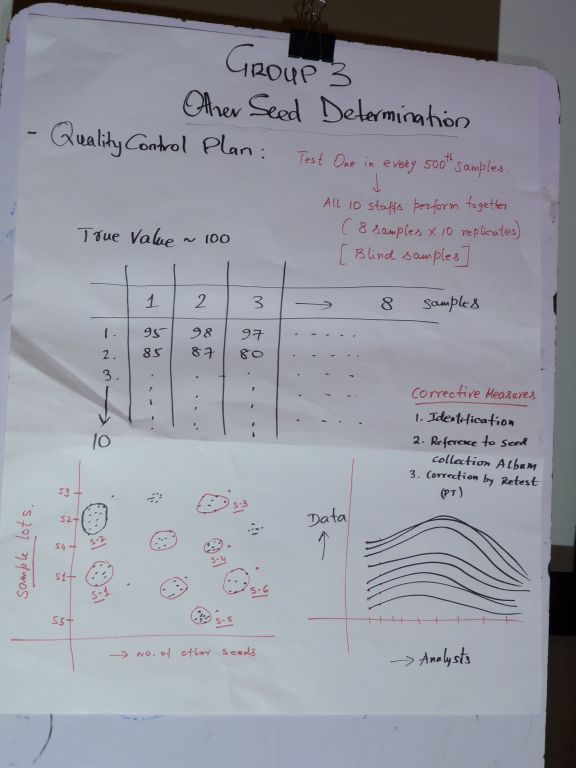 GROUP 3
Other Seed Determination
- Quality Control Plan:
Test One in every 500th samples.
↓
All 10 staffs perform together
(8 samples × 10 replicates)
[Blind samples]
True Value ~ 100
1 2 3 → 8 samples
1. 95 98 97 .....
2. 85 87 80 .....
3.
↓
10
Corrective Measures
1. Identification
2. Reference to seed
collection Album
3. Correction by Retest
(PT)
Sample lots.
S3
S2
S4
S1
S5
S-3
S-2
S-4
S-1
S-6
S-5
→ No. of other seeds
Data
↑
→ Analysts